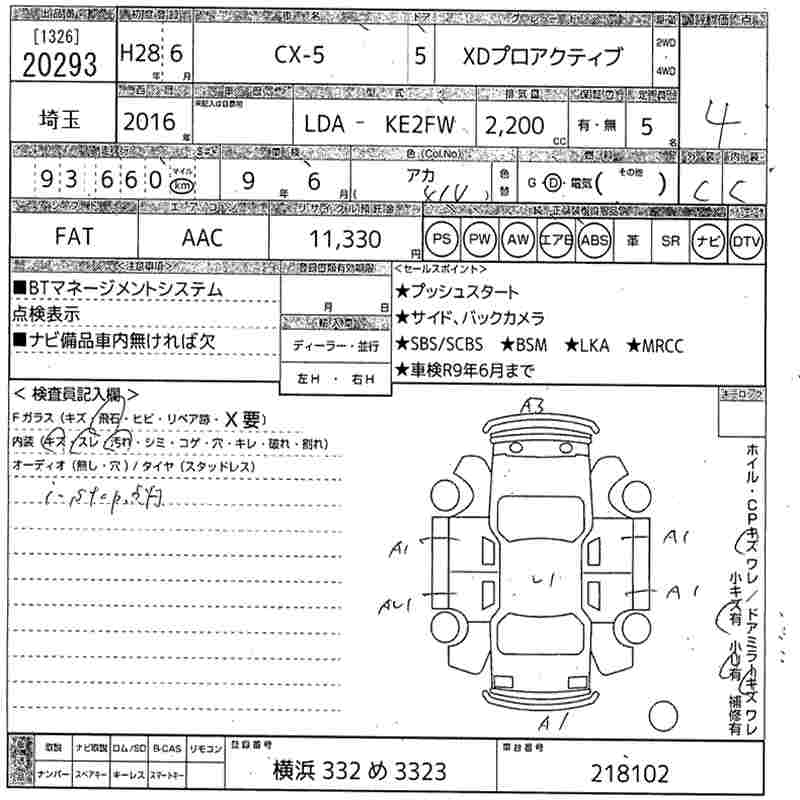 出品番号 初度登録 車名 ドア グレード 駆動 評価点
[1326]
20293 H28年 6月 CX-5 5 XDプロアクティブ 2WD・4WD
埼玉 西暦 車歴 型式 排気量 保証書 定員
2016年 未記入は自家用 LDA - KE2FW 2,200cc 有・無 5名 4
走行 車検 色(Col.No) 燃料 外装 内装
93,660 マイル km 9年 6月 アカ (41V) 色替 G・D・電気( その他 ) C C
シフト エアコン リサイクル預託金
FAT AAC 11,330円 PS PW AW エアB ABS 革 SR ナビ DTV
<注意事項> 登録書類有効期限 <セールスポイント>
■BTマネージメントシステム
点検表示
■ナビ備品車内無ければ欠
月 日
輸入車
ディーラー・並行
左H ・ 右H
★プッシュスタート
★サイド、バックカメラ
★SBS/SCBS ★BSM ★LKA ★MRCC
★車検R9年6月まで
<検査員記入欄>
Fガラス(キズ・飛石・ヒビ・リペア跡・X要)
内装(キズ・スレ・汚れ・シミ・コゲ・穴・キレ・破れ・割れ)
オーディオ(無し・穴)/タイヤ(スタッドレス)
A3
A1 A1
U1
AU1 A1
A1
ホイル・CPキズ ワレ/ドアミラーキズ ワレ
小キズ有 小U有 補修有
取説 ナビ取説 ロム/SD B-CAS リモコン 登録番号 車台番号
ナンバー スペアキー キーレス スマートキー 横浜 332 め 3323 218102